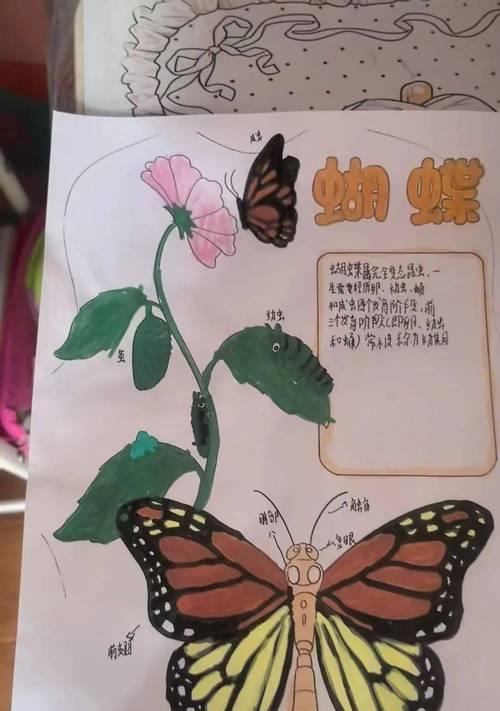 成虫
蝴蝶
蝴蝶属完全变态昆虫,一
生需要经历卵、幼虫、蛹
和成虫四个发育阶段,前
三个发育阶段(即卵、幼虫
和蛹)常被称为幼虫期
幼虫
茧
胸部
触角
复眼
前翅